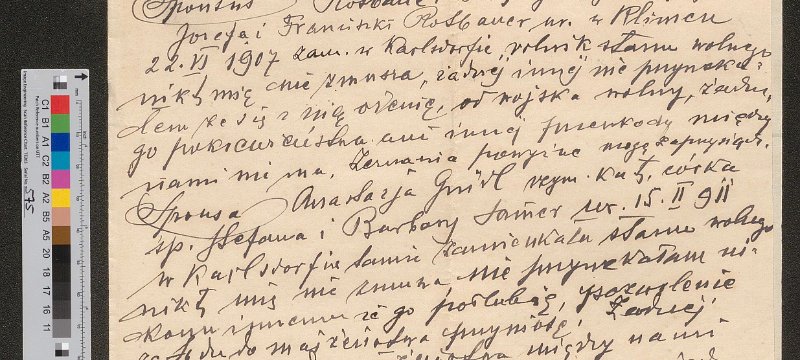 Sponsus
Józefa i Franciszki Rotbauer ur. w Klimcu
22. VI 1907 zam. w Karlsdorfie rolnik stanu wolnego
nikt mię nie zmusza, żadnej innej nie przyrzeka-
łem że się z nią ożenię, od wojska wolny, żadne-
go pokrewieństwa ani innej przeszkody między
nami nie ma. Zeznania powyższe mogę zaprzysiądz.
Sponsa Anastazja Gnidl rzym. kat. córka
sp. Stefana i Barbary ur. 15. II 911
w Karlsdorfie tamże zamieszkała stanu wolnego
nikt mię nie zmusza nie przyrzekałam ni-
komu innemu że go poślubię, pozwolenie
do małżeństwa przyniosę. Żadnej
między nami